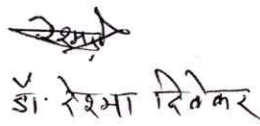 रेश्मा
डॉ. रेश्मा दिवेकर